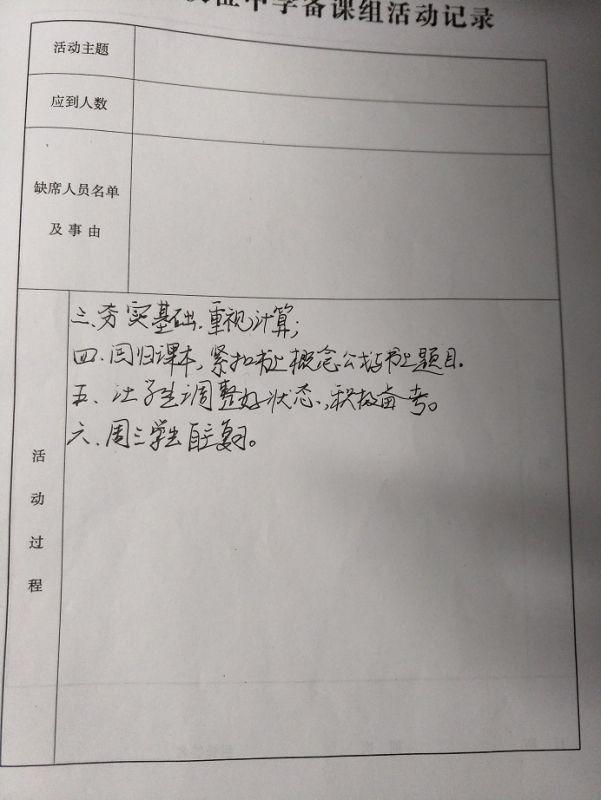 中学备课组活动记录
活动主题
应到人数
缺席人员名单
及事由
活动过程
三、夯实基础,重视计算;
四、回归课本,紧扣书上概念公式书上题目.
五、让学生调整好状态,积极备考。
六、周三学生自主复习。